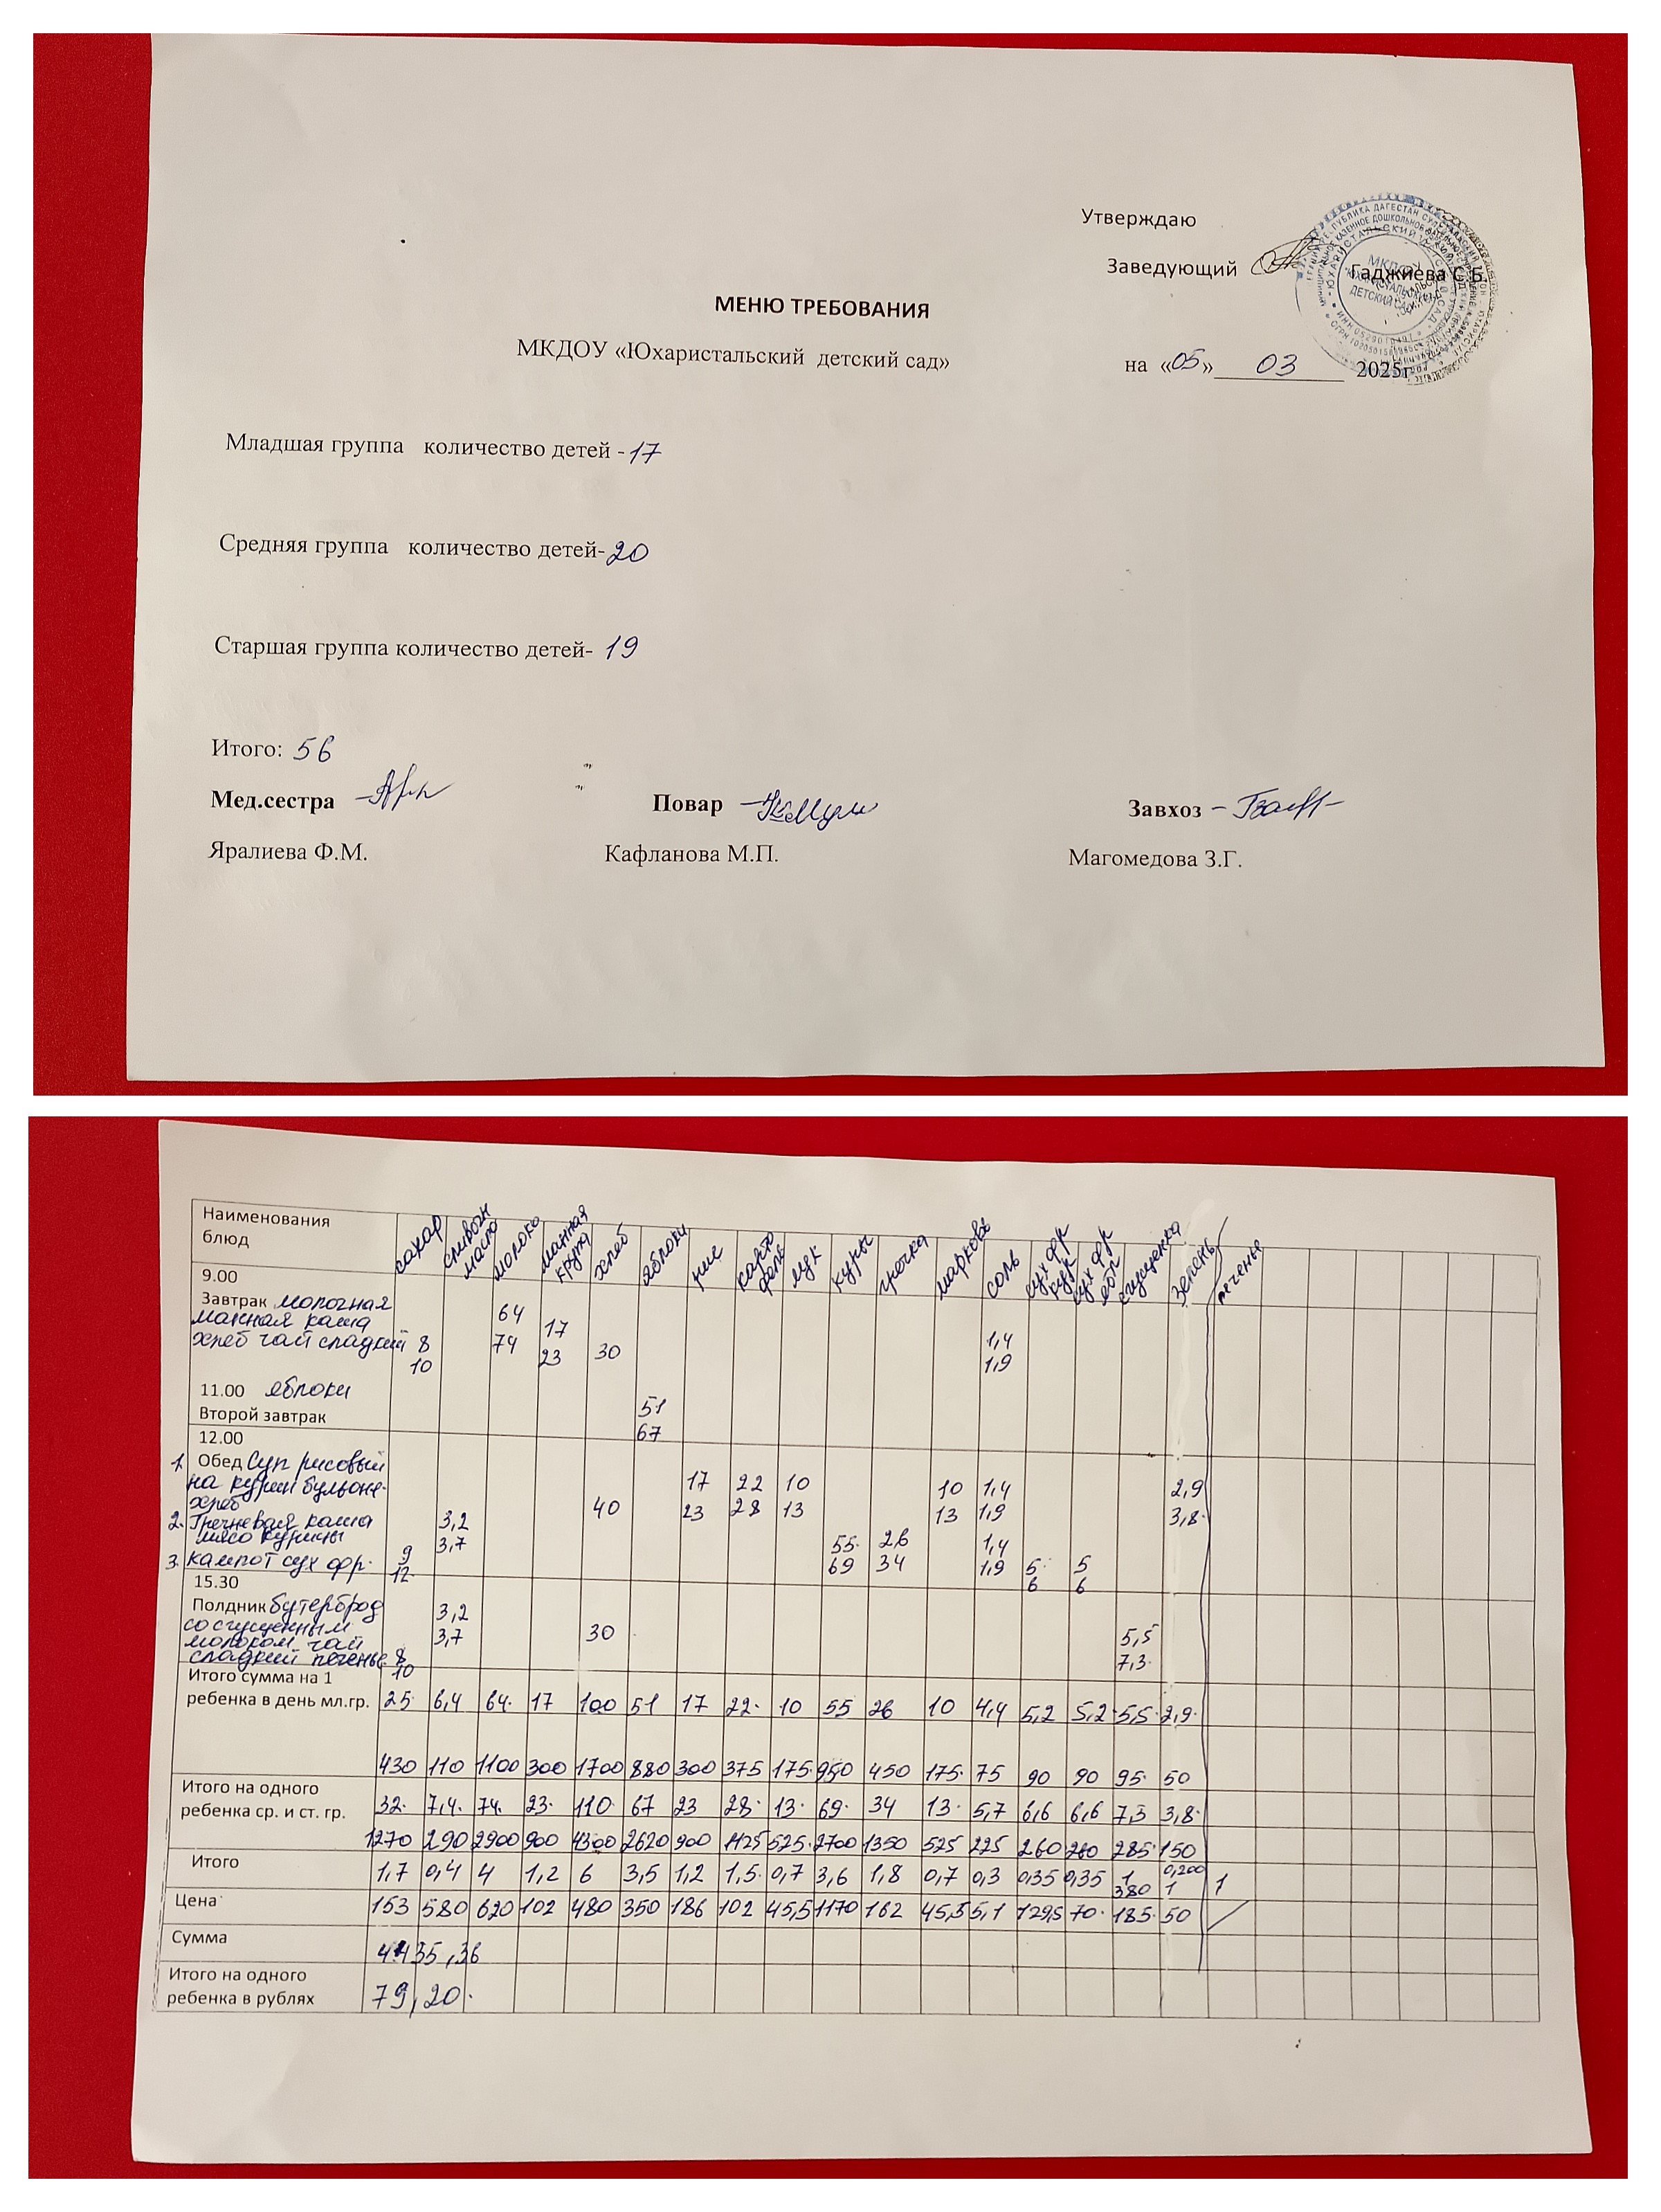 Утверждаю
Заведующий Гаджиева С.Б.
МЕНЮ ТРЕБОВАНИЯ
МКДОУ «Юхаристальский детский сад»
на «05» 03 2025г
Младшая группа количество детей - 17
Средняя группа количество детей- 20
Старшая группа количество детей- 19
Итого: 56
Мед.сестра Повар Завхоз
Яралиева Ф.М. Кафланова М.П. Магомедова З.Г.
Наименования блюд сахар сливочн масло молоко манная крупа хлеб яблоки рис карто фель лук куры гречка маркове соль сух фр кур сух фр ябл сгущенка зелень печенье
9.00
Завтрак молочная 64
манная каша 17 1,4
хлеб чай сладкий 8 74 23 30 1,9
10
11.00 яблоки 51
Второй завтрак 67
12.00
1. Обед Суп рисовый
на курин бульоне 17 22 10 10 1,4 2,9
хлеб 40 23 28 13 13 1,9 3,8
2. Гречневая каша 3,2
мясо курины 3,7 55 26 1,4
3. кампот сух фр. 9 69 34 1,9 5 5
12 6 6
15.30
Полдник бутерброд 3,2
со сгущенным 3,7 30 5,5
молоком чай 7,3
сладкий печенье 8
10
Итого сумма на 1
ребенка в день мл.гр. 25 6,4 64 17 100 51 17 22 10 55 26 10 4,4 5,2 5,2 5,5 2,9
430 110 1100 300 1700 880 300 375 175 950 450 175 75 90 90 95 50
Итого на одного
ребенка ср. и ст. гр. 32 7,4 74 23 110 67 23 28 13 69 34 13 5,7 6,6 6,6 7,3 3,8
1270 290 2900 900 4300 2620 900 1125 525 2700 1350 525 225 260 260 285 150
Итого 1,7 0,4 4 1,2 6 3,5 1,2 1,5 0,7 3,6 1,8 0,7 0,3 0,35 0,35 1 0,200 1
380 1
Цена 153 580 620 102 480 350 186 102 45,5 1170 162 45,5 5,1 129,5 70 185 50
Сумма 4435,36
Итого на одного
ребенка в рублях 79,20